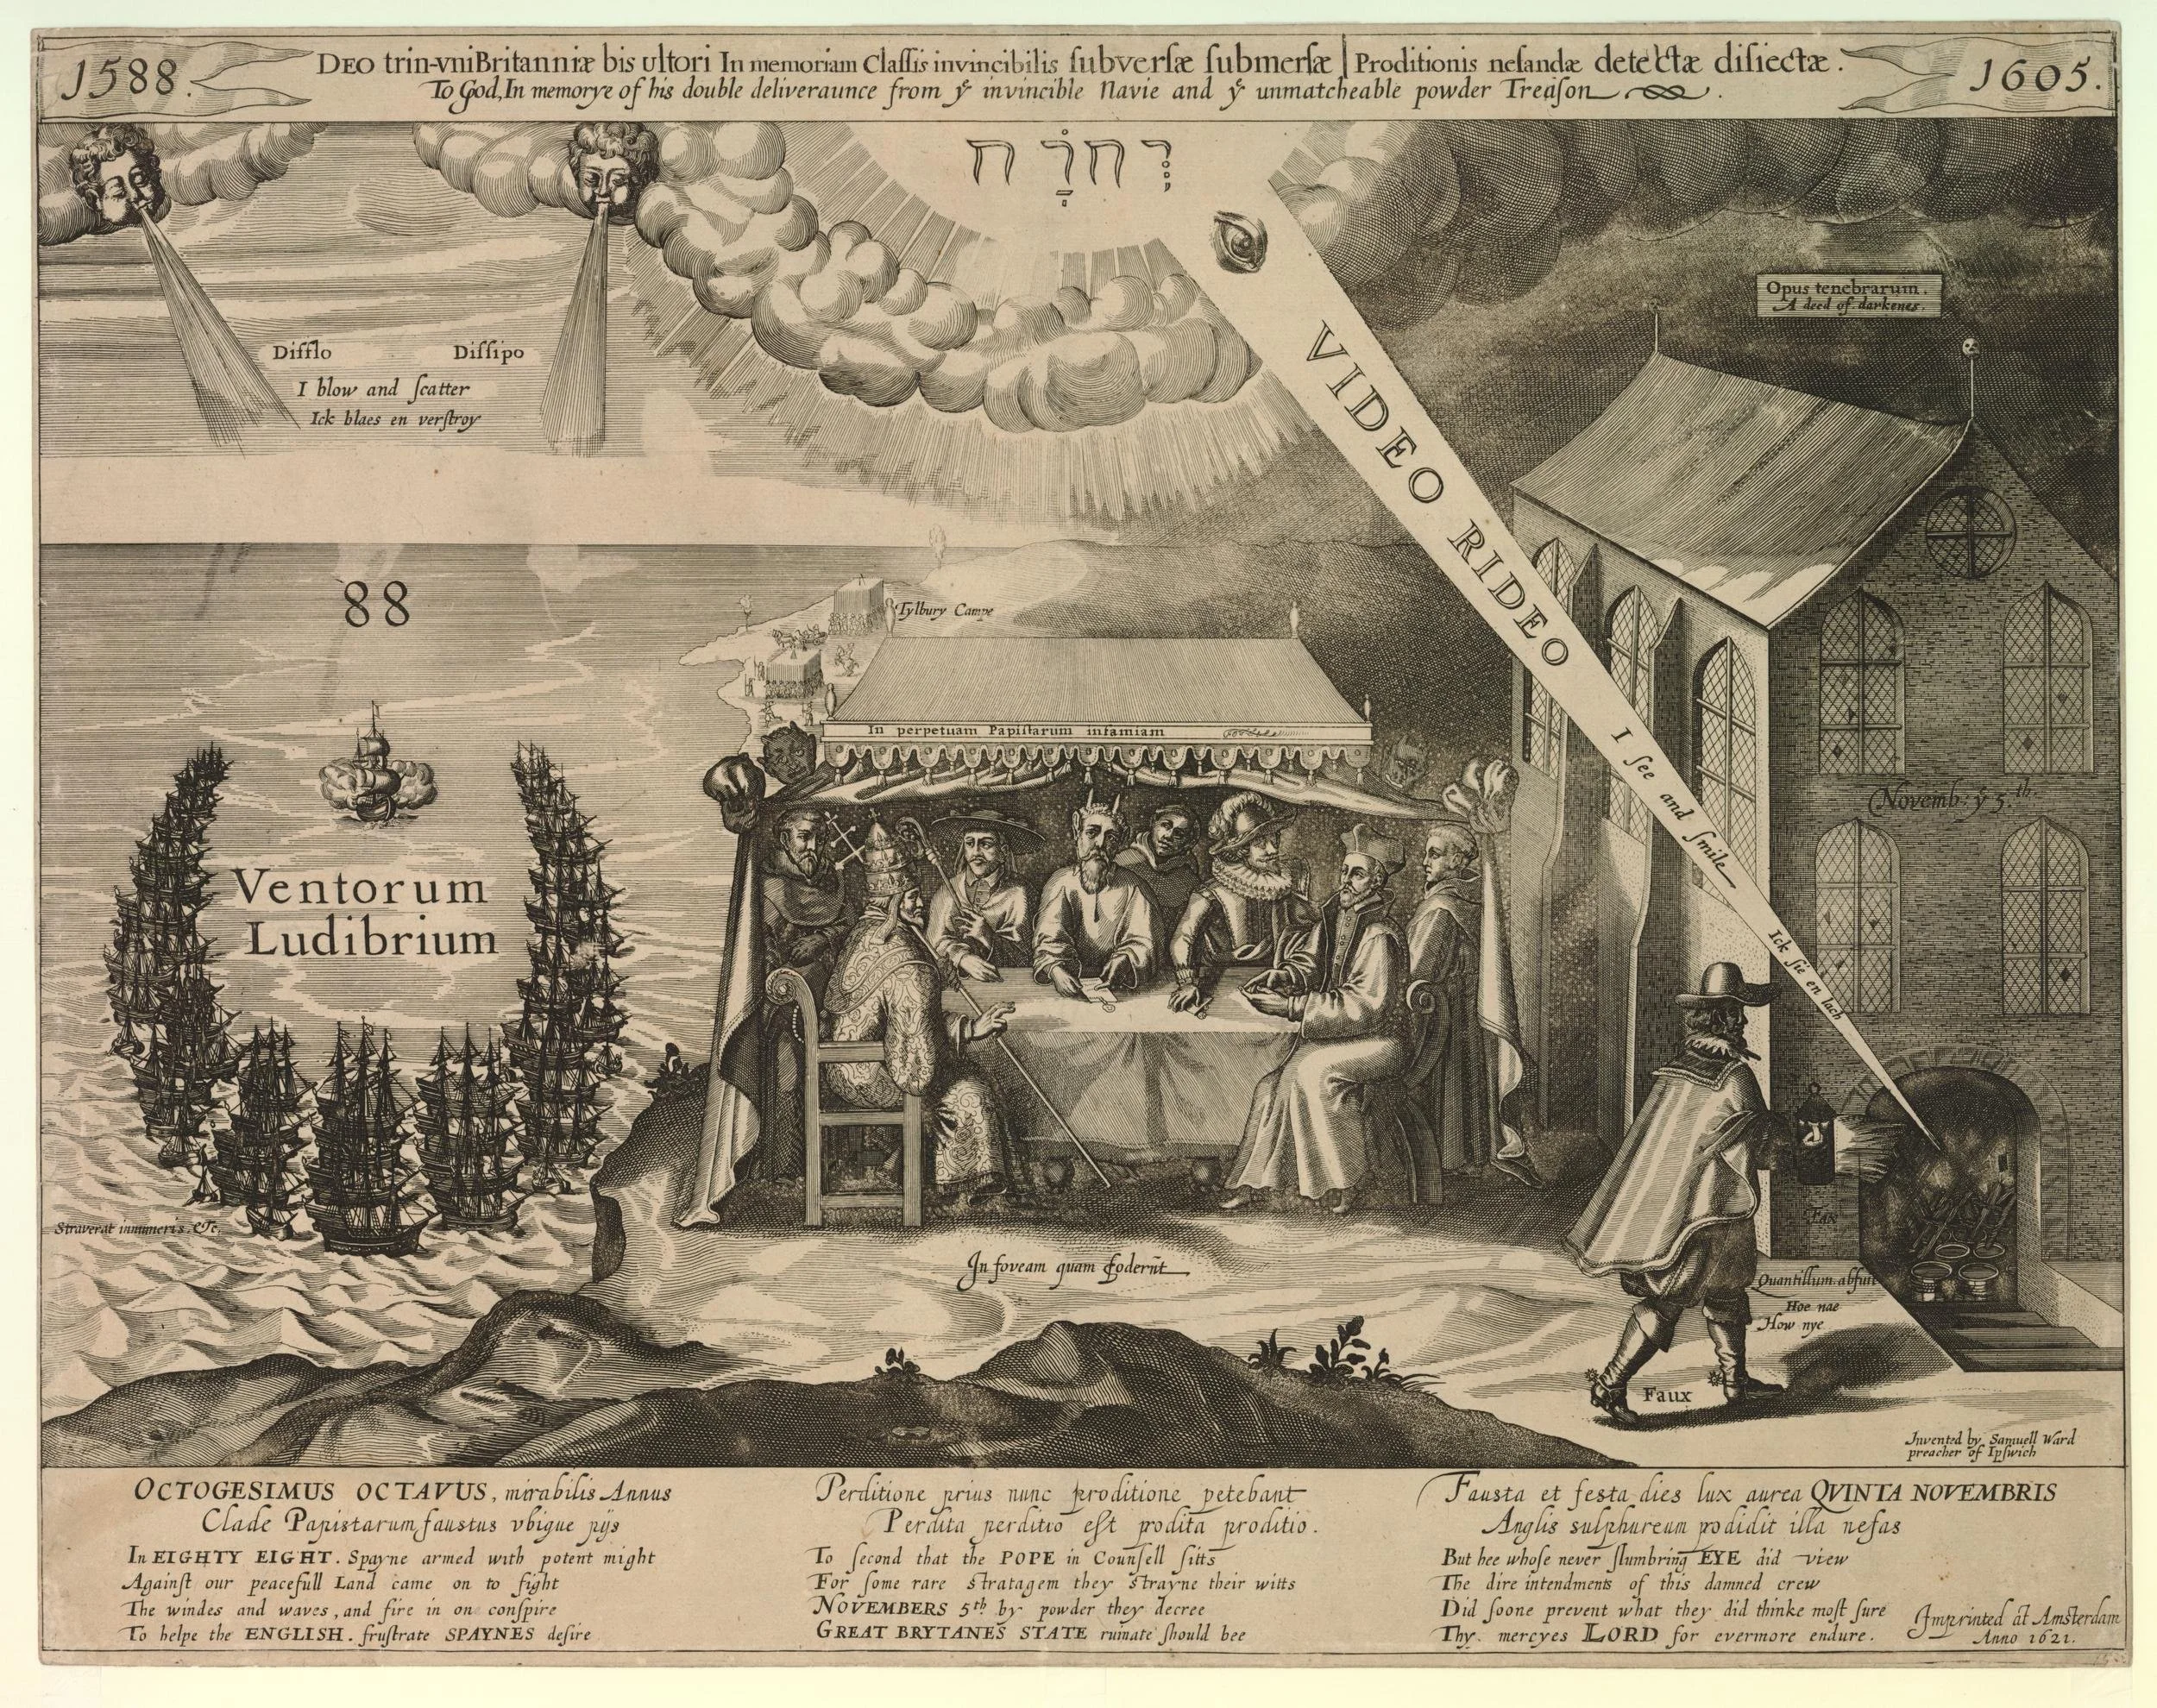 1588.
DEO trin-vniBritanniæ bis ultori In memoriam Claſſis invincibilis ſubverſæ ſubmerſæ | Proditionis nefandæ detectæ diſiectæ.
To God, In memorye of his double deliveraunce from yͤ invincible Navie and yͤ unmatcheable powder Treaſon.
1605.
Difflo Diſſipo
I blow and ſcatter
Ick blaes en verſtroy
VIDEO RIDEO
I ſee and ſmile
Ick ſie en lach
Opus tenebrarum.
A deed of darkenes.
88
Tylbury Campe
In perpetuam Papiſtarum infamiam
Novemb: yͤ 5.th
Ventorum
Ludibrium
Straverat innumeris. &c.
In foveam quam foderūt
Fax
Quantillum abfuit
Hoe nae
How nye
Faux
Invented by Samuell Ward
preacher of Ipſwich
OCTOGESIMUS OCTAVUS, mirabilis Annus
Clade Papistarum faustus vbique pijs
In EIGHTY EIGHT. Spayne armed with potent might
Againſt our peacefull Land came on to fight
The windes and waves, and fire in one conſpire
To helpe the ENGLISH. fruſtrate SPAYNES deſire
Perditione prius nunc proditione petebant
Perdita perditio eſt prodita proditio.
To ſecond that the POPE in Counſell ſitts
For ſome rare stratagem they strayne their witts
NOVEMBERS 5th by powder they decree
GREAT BRYTANES STATE ruinate ſhould bee
Fausta et festa dies lux aurea QVINTA NOVEMBRIS
Anglis sulphureum prodidit illa nefas
But hee whoſe never ſlumbring EYE did view
The dire intendments of this damned crew
Did ſoone prevent what they did thinke moſt ſure
Thy mercyes LORD for evermore endure.
Imprinted at Amsterdam
Anno 1621.